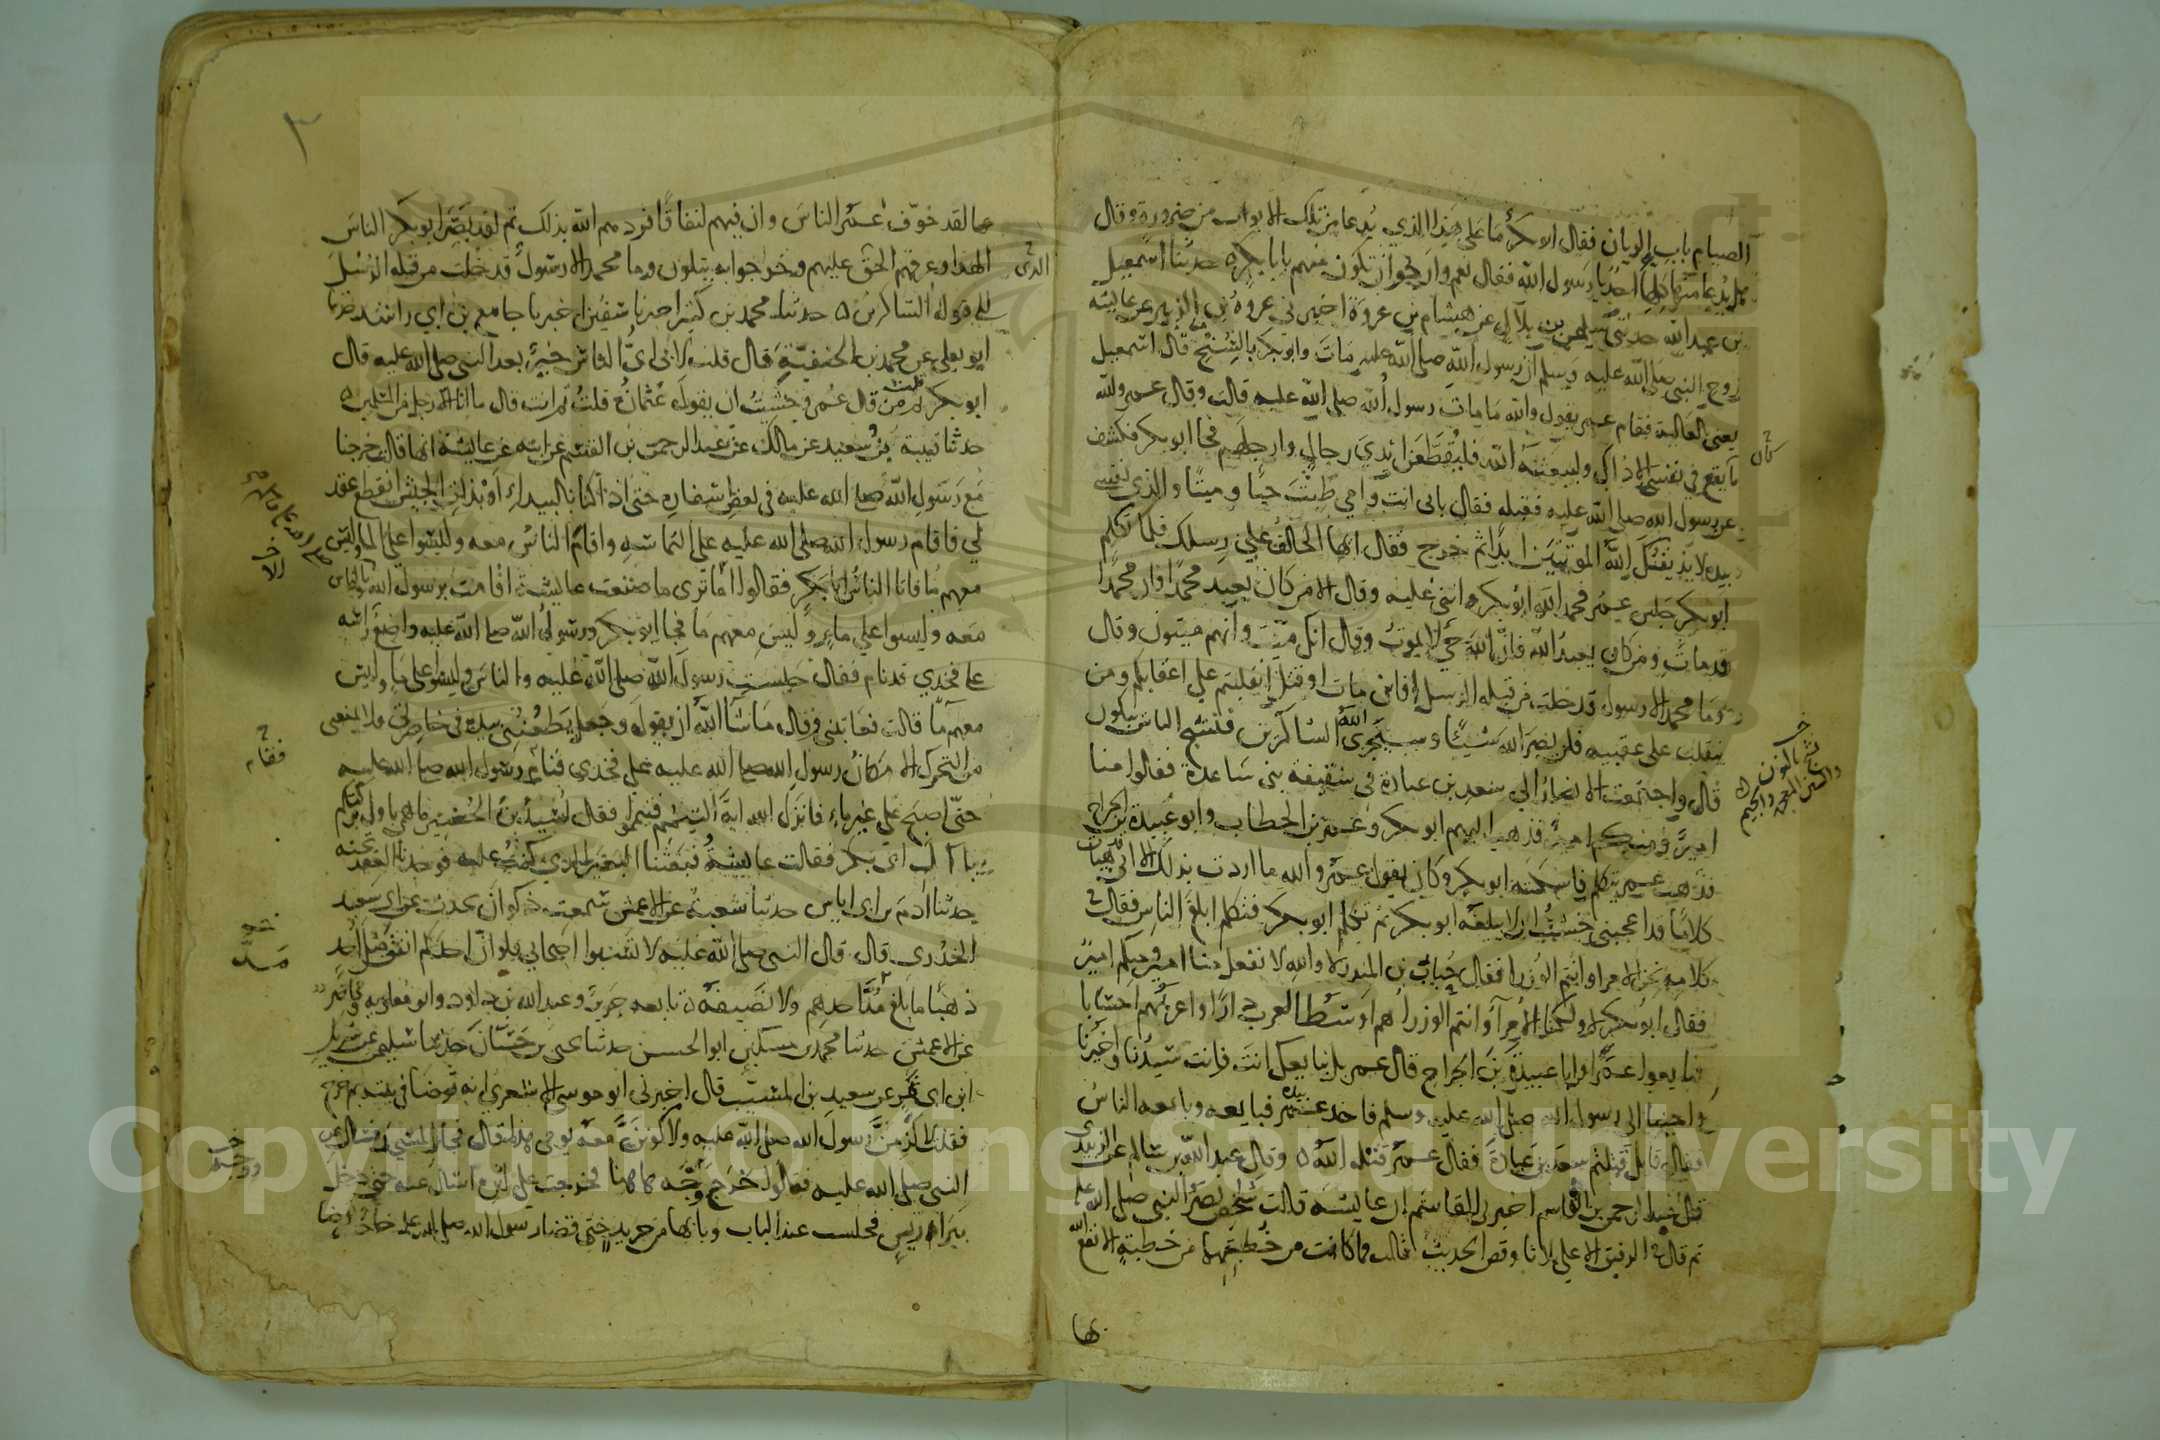 الصيام باب الريان فقال ابو بكر ما على هذا الذي يدعا من تلك الابواب من ضرورة وقال
هل يدعا منها كلها احد يا رسول الله فقال نعم وارجوا ان تكون منهم يابا بكر ه حدثنا اسمعيل
بن عبد الله حدثني سليمن بن بلال عن هشام بن عروة اخبرني عروة بن الزبير عن عايشة
زوج النبي صلى الله عليه وسلم ان رسول الله صلى الله عليه مات وابو بكر بالسنح قال اسمعيل
يعني العالية فقام عمر يقول والله ما مات رسول الله صلى الله عليه قالت وقال عمر والله
ما يقع في نفسي الا ذاك وليبعثنه الله فليقطعن ايدي رجال وارجلهم فجا ابو بكر فكشف
كان
عن رسول الله صلى الله عليه فقبله فقال بابي انت وامي طبت حيا وميتا والذي نفسي
بيده لا يذيقنك الله الموتتين ابدا ثم خرج فقال ايها الحالف على رسلك فلما تكلم
ابو بكر جلس عمر فحمد الله ابو بكر واثنى عليه وقال الا من كان يعبد محمدا فان محمدا
قد مات ومن كان يعبد الله فان الله حي لا يموت وقال انك ميت وانهم ميتون وقال
وما محمد الا رسول قد خلت من قبله الرسل افاين مات او قتل انقلبتم على اعقابكم ومن
ينقلب على عقبيه فلن يضر الله شيئا وسيجزي الله الشاكرين فنشج الناس يبكون
قال واجتمعت الانصار الى سعد بن عبادة في سقيفة بني ساعدة فقالوا منا
امير ومنكم امير فذهب اليهم ابو بكر وعمر بن الخطاب وابو عبيدة بن الجراح
فذهب عمر يتكلم فاسكته ابو بكر وكان يقول عمر والله ما اردت بذلك الا اني هيات
كلاما قد اعجبني خشيت ان لا يبلغه ابو بكر ثم تكلم ابو بكر فتكلم ابلغ الناس فقال في
كلامه نحن الامرا وانتم الوزرا فقال حباب بن المنذر لا والله لا نفعل منا امير ومنكم امير
فقال ابو بكر لا ولكنا الامرا وانتم الوزرا هم اوسط العرب دارا واعربهم احسابا
فبايعوا عمر او ابا عبيدة بن الجراح قال عمر بل نبايعك انت فانت سيدنا وخيرنا
واحبنا الى رسول الله صلى الله عليه وسلم فاخذ عمر بيده فبايعه وبايعه الناس
فقال قايل قتلتم سعد بن عبادة فقال عمر قتله الله ه وقال عبد الله بن سالم عن الزبيدي
قال عبد الرحمن بن القاسم اخبرني القاسم ان عايشة قالت شخص بصر النبي صلى الله عليه
ثم قال في الرفيق الاعلى ثلاثا وقص الحديث قالت فما كانت من خطبتهما من خطبة الا نفع الله
بها
٣
بها لقد خوف عمر الناس وان فيهم لنفاقا فردهم الله بذلك ثم لقد بصر ابو بكر الناس
الهدا وعرفهم الحق عليهم وخرجوا به يتلون وما محمد الا رسول قد خلت من قبله الرسل
الذي
الى قوله الشاكرين ه حدثنا محمد بن كثير اخبرنا سفين اخبرنا جامع بن ابي راشد حدثنا
ابو يعلى عن محمد بن الحنفية قال قلت لابي اي الناس خير بعد النبي صلى الله عليه قال
ابو بكر قلت ثم من قال عمر وخشيت ان يقول عثمان قلت ثم انت قال ما انا الا رجل من المسلمين ه
حدثنا قتيبة بن سعيد عن مالك عن عبد الرحمن بن القسم عن ابيه عن عايشة انها قالت خرجنا
مع رسول الله صلى الله عليه في بعض اسفاره حتى اذا كنا بالبيداء او بذات الجيش انقطع عقد
لي فاقام رسول الله صلى الله عليه على التماسه واقام الناس معه وليسوا على ما وليس
معهم ما فاتا الناس ابا بكر فقالوا اما ترى ما صنعت عايشة اقامت برسول الله وبالناس
معه وليسوا على ماء وليس معهم ما فجا ابو بكر ورسول الله صلى الله عليه واضع راسه
على فخذي قد نام فقال حبست رسول الله صلى الله عليه والناس وليسوا على ما وليس
معهم ما قالت فعاتبني وقال ما شا الله ان يقول وجعل يطعنني بيده في خاصرتي ولا يمنعني
من التحرك الا مكان رسول الله صلى الله عليه على فخذي فنام رسول الله صلى الله عليه
فقام
حتى اصبح على غير ماء فانزل الله اية التيمم فتيمموا فقال اسيد بن الحضير ما هي باول بركتكم
يا آل ابي بكر فقالت عايشة فبعثنا البعير الذي كنت عليه فوجدنا العقد تحته
حدثنا آدم بن ابي اياس حدثنا شعبة عن الاعمش سمعت ذكوان يحدث عن ابي سعيد
الخدري قال قال النبي صلى الله عليه لا تسبوا اصحابي فلو ان احدكم انفق مثل احد
ذهبا ما بلغ مد احدهم ولا نصيفه ه تابعه جرير وعبد الله بن داود وابو معاوية ومحاضر
عن الاعمش حدثنا محمد بن مسكين ابو الحسن حدثنا يحيى بن حسان حدثنا سليمن عن شريك
ابن ابي نمر عن سعيد بن المسيب قال اخبرني ابو موسى الاشعري انه توضا في بيته ثم خرج
فقلت لالزمن رسول الله صلى الله عليه ولاكونن معه يومي هذا قال فجا المسجد فسال عن
النبي صلى الله عليه فقالوا خرج وجه هاهنا فخرجت على اثره اسال عنه حتى دخل
بير اريس فجلست عند الباب وبابها من جريد حتى قضا رسول الله صلى الله عليه حاجته
Copyright © King Saud University